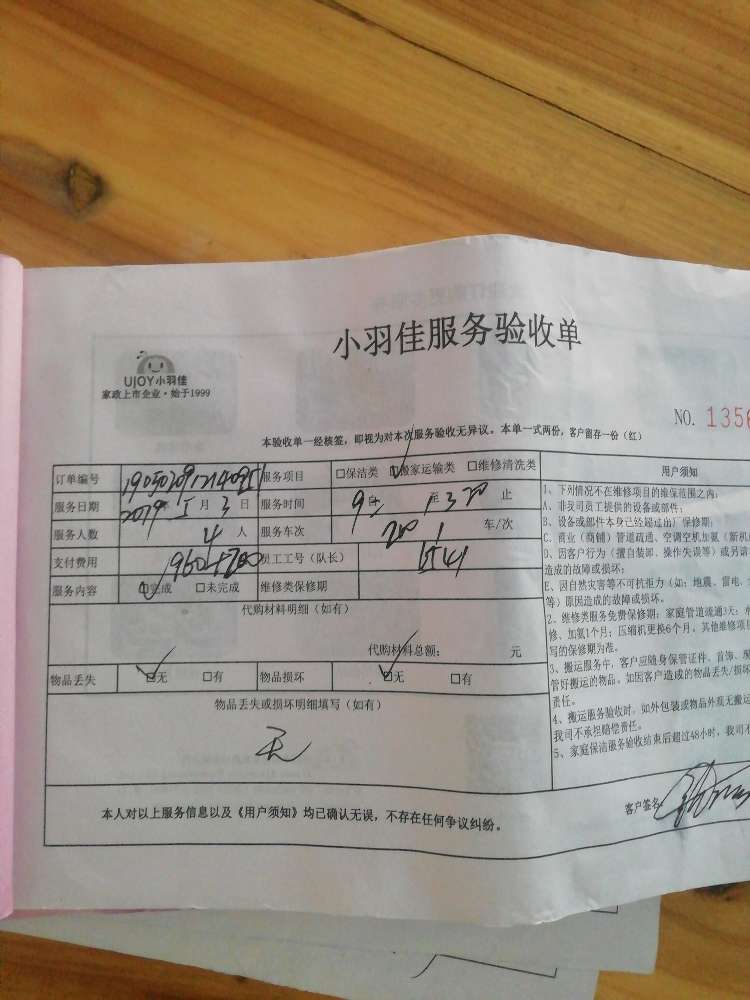 小羽佳服务验收单
UJOY小羽佳
家政上市企业·始于1999
NO. 1356
本验收单一经核签，即视为对本次服务验收无异议。本单一式两份，客户留存一份（红）
订单编号 服务项目 □保洁类 ☑搬家运输类 □维修清洗类 用户须知
服务日期 2019年 5月 3日 服务时间 9 至 止
服务人数 4 人 服务车次 车/次
支付费用 960+200 员工工号（队长）
服务内容 ☑完成 □未完成 维修类保修期
代购材料明细（如有）
代购材料总额： 元
物品丢失 ☑无 □有 物品损坏 ☑无 □有
物品丢失或损坏明细填写（如有）
无
本人对以上服务信息以及《用户须知》均已确认无误，不存在任何争议纠纷。
1、下列情况不在维修项目的维保范围之内：
A、非我司员工提供的设备或部件；
B、设备或部件本身已经超过出厂保修期；
C、商业（商铺）管道疏通、空调空机加氨（新机
D、因客户行为（擅自装卸、操作失误等）或另请
造成的故障或损坏；
E、因自然灾害等不可抗拒力（如：地震、雷电、
等）原因造成的故障或损坏。
2、维修类服务免费保修期：家庭管道疏通3天；
修、加氨1个月；压缩机更换6个月。其他维修项
写的保修期为准。
3、搬运服务中，客户应随身保管证件、首饰、
管好搬运的物品。如因客户造成的物品丢失/损坏
责任。
4、搬运服务验收时，如外包装或物品外观无搬运
我司不承担赔偿责任。
5、家庭保洁服务验收结束后超过48小时，我司不
客户签名：